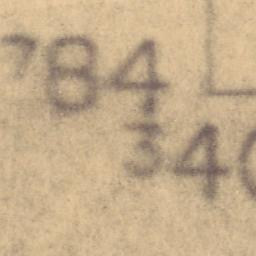 784
340